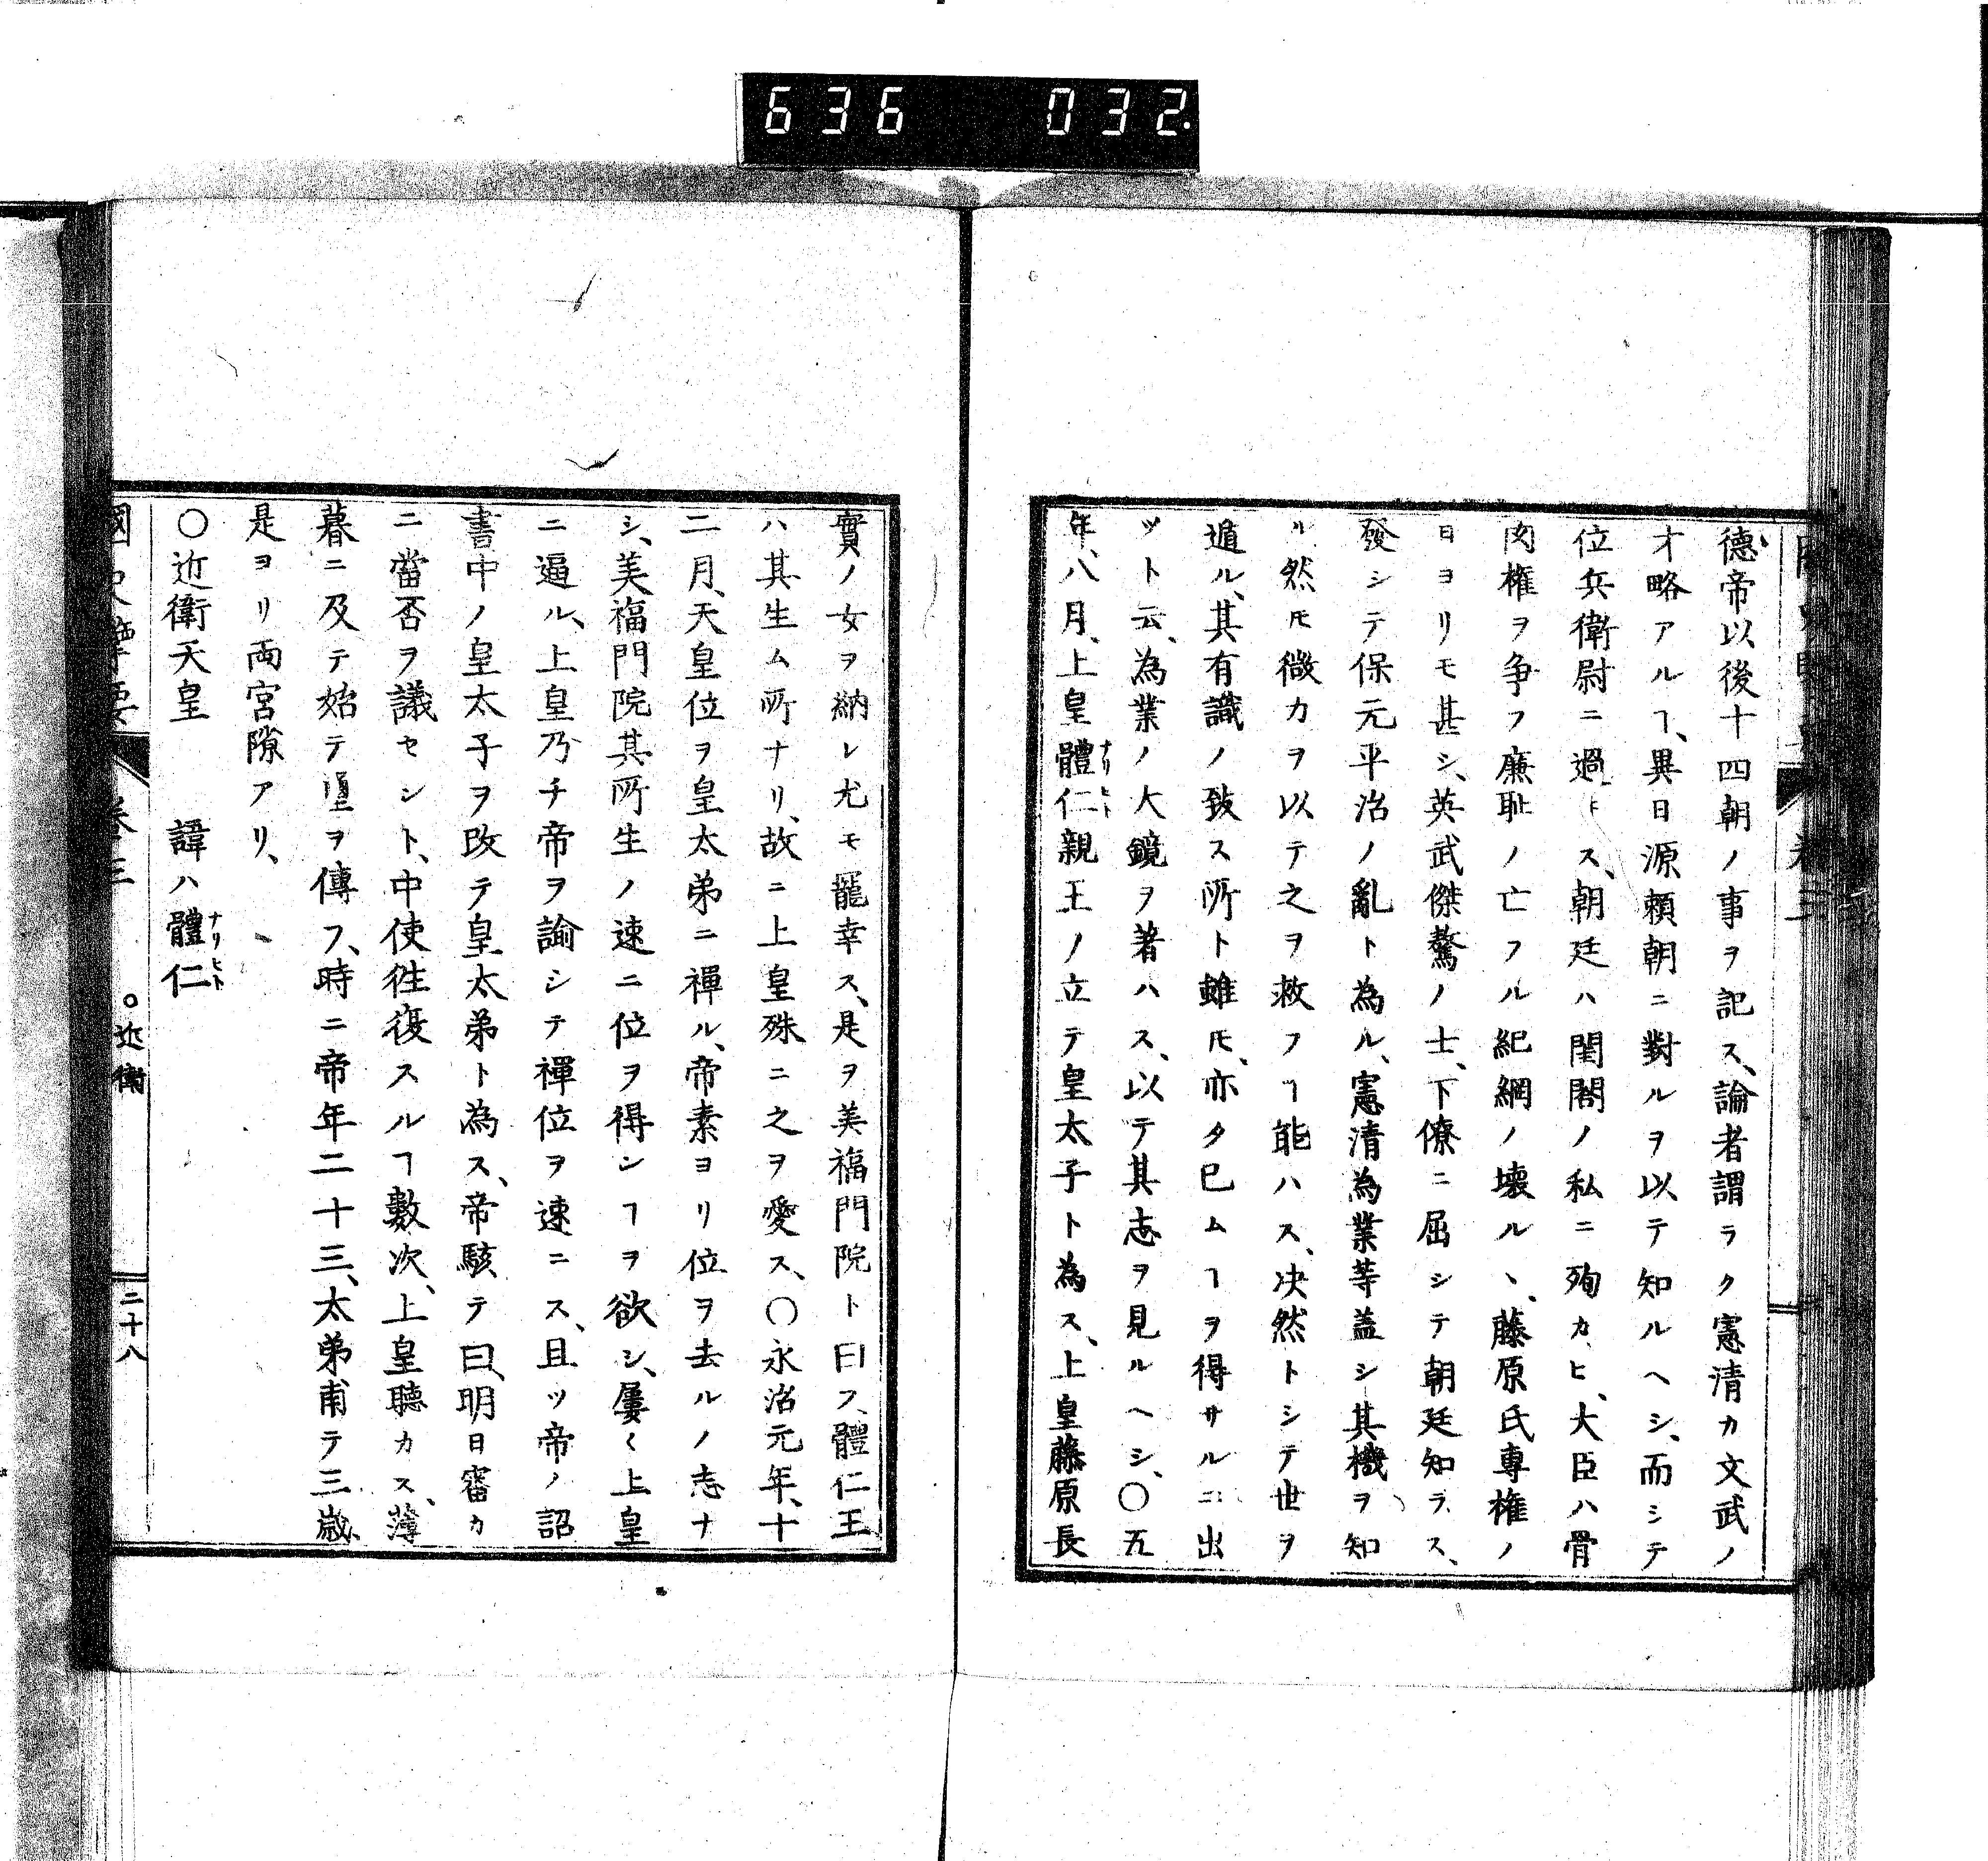 636 032
德帝以後十四朝ノ事ヲ記ス、論者謂ラク憲清カ文武ノ
才略アルヿ、異日源賴朝ニ對ルヲ以テ知ルヘシ、而シテ
位兵衛尉ニ過キス、朝廷ハ閨閤ノ私ニ殉カヒ、大臣ハ骨
肉権ヲ争フ廉恥ノ亡フル紀綱ノ壊ルヽ、藤原氏専権ノ
日ヨリモ甚シ、英武傑驁ノ士、下僚ニ屈シテ朝廷知ラス、
發シテ保元平治ノ亂ト為ル、憲清為業等盖シ其機ヲ知
ル然𪜈微力ヲ以テ之ヲ救フヿ能ハス、决然トシテ世ヲ
遁ル、其有識ノ致ス所ト雖𪜈、亦タ已ムヿヲ得サルニ出
ツト云、為業ノ大鏡ヲ著ハス、以テ其志ヲ見ルヘシ、〇五
年、八月、上皇體仁親王ノ立テ皇太子ト為ス、上皇藤原長
ナリヒト
實ノ女ヲ納レ尤モ寵幸ス、是ヲ美福門院ト曰フ、體仁王
ハ其生ム所ナリ、故ニ上皇殊ニ之ヲ愛ス、〇永治元年、十
二月、天皇位ヲ皇太弟ニ禪ル、帝素ヨリ位ヲ去ルノ志ナ
シ、美福門院其所生ノ速ニ位ヲ得ンヿヲ欲シ、屢く上皇
ニ逼ル、上皇乃チ帝ヲ諭シテ禪位ヲ速ニス、且ツ帝ノ詔
書中ノ皇太子ヲ改テ皇太弟ト為ス、帝駭テ曰、明日審カ
ニ當否ヲ議セシト、中使徃復スルヿ數次、上皇聽カス、薄
暮ニ及テ始テ璽ヲ傳フ、時ニ帝年二十三、太弟甫テ三歳、
是ヨリ両宮隙アリ、
〇近衛天皇 諱ハ體仁
ナリヒト
國史擥要 卷三 〇近衛 二十八